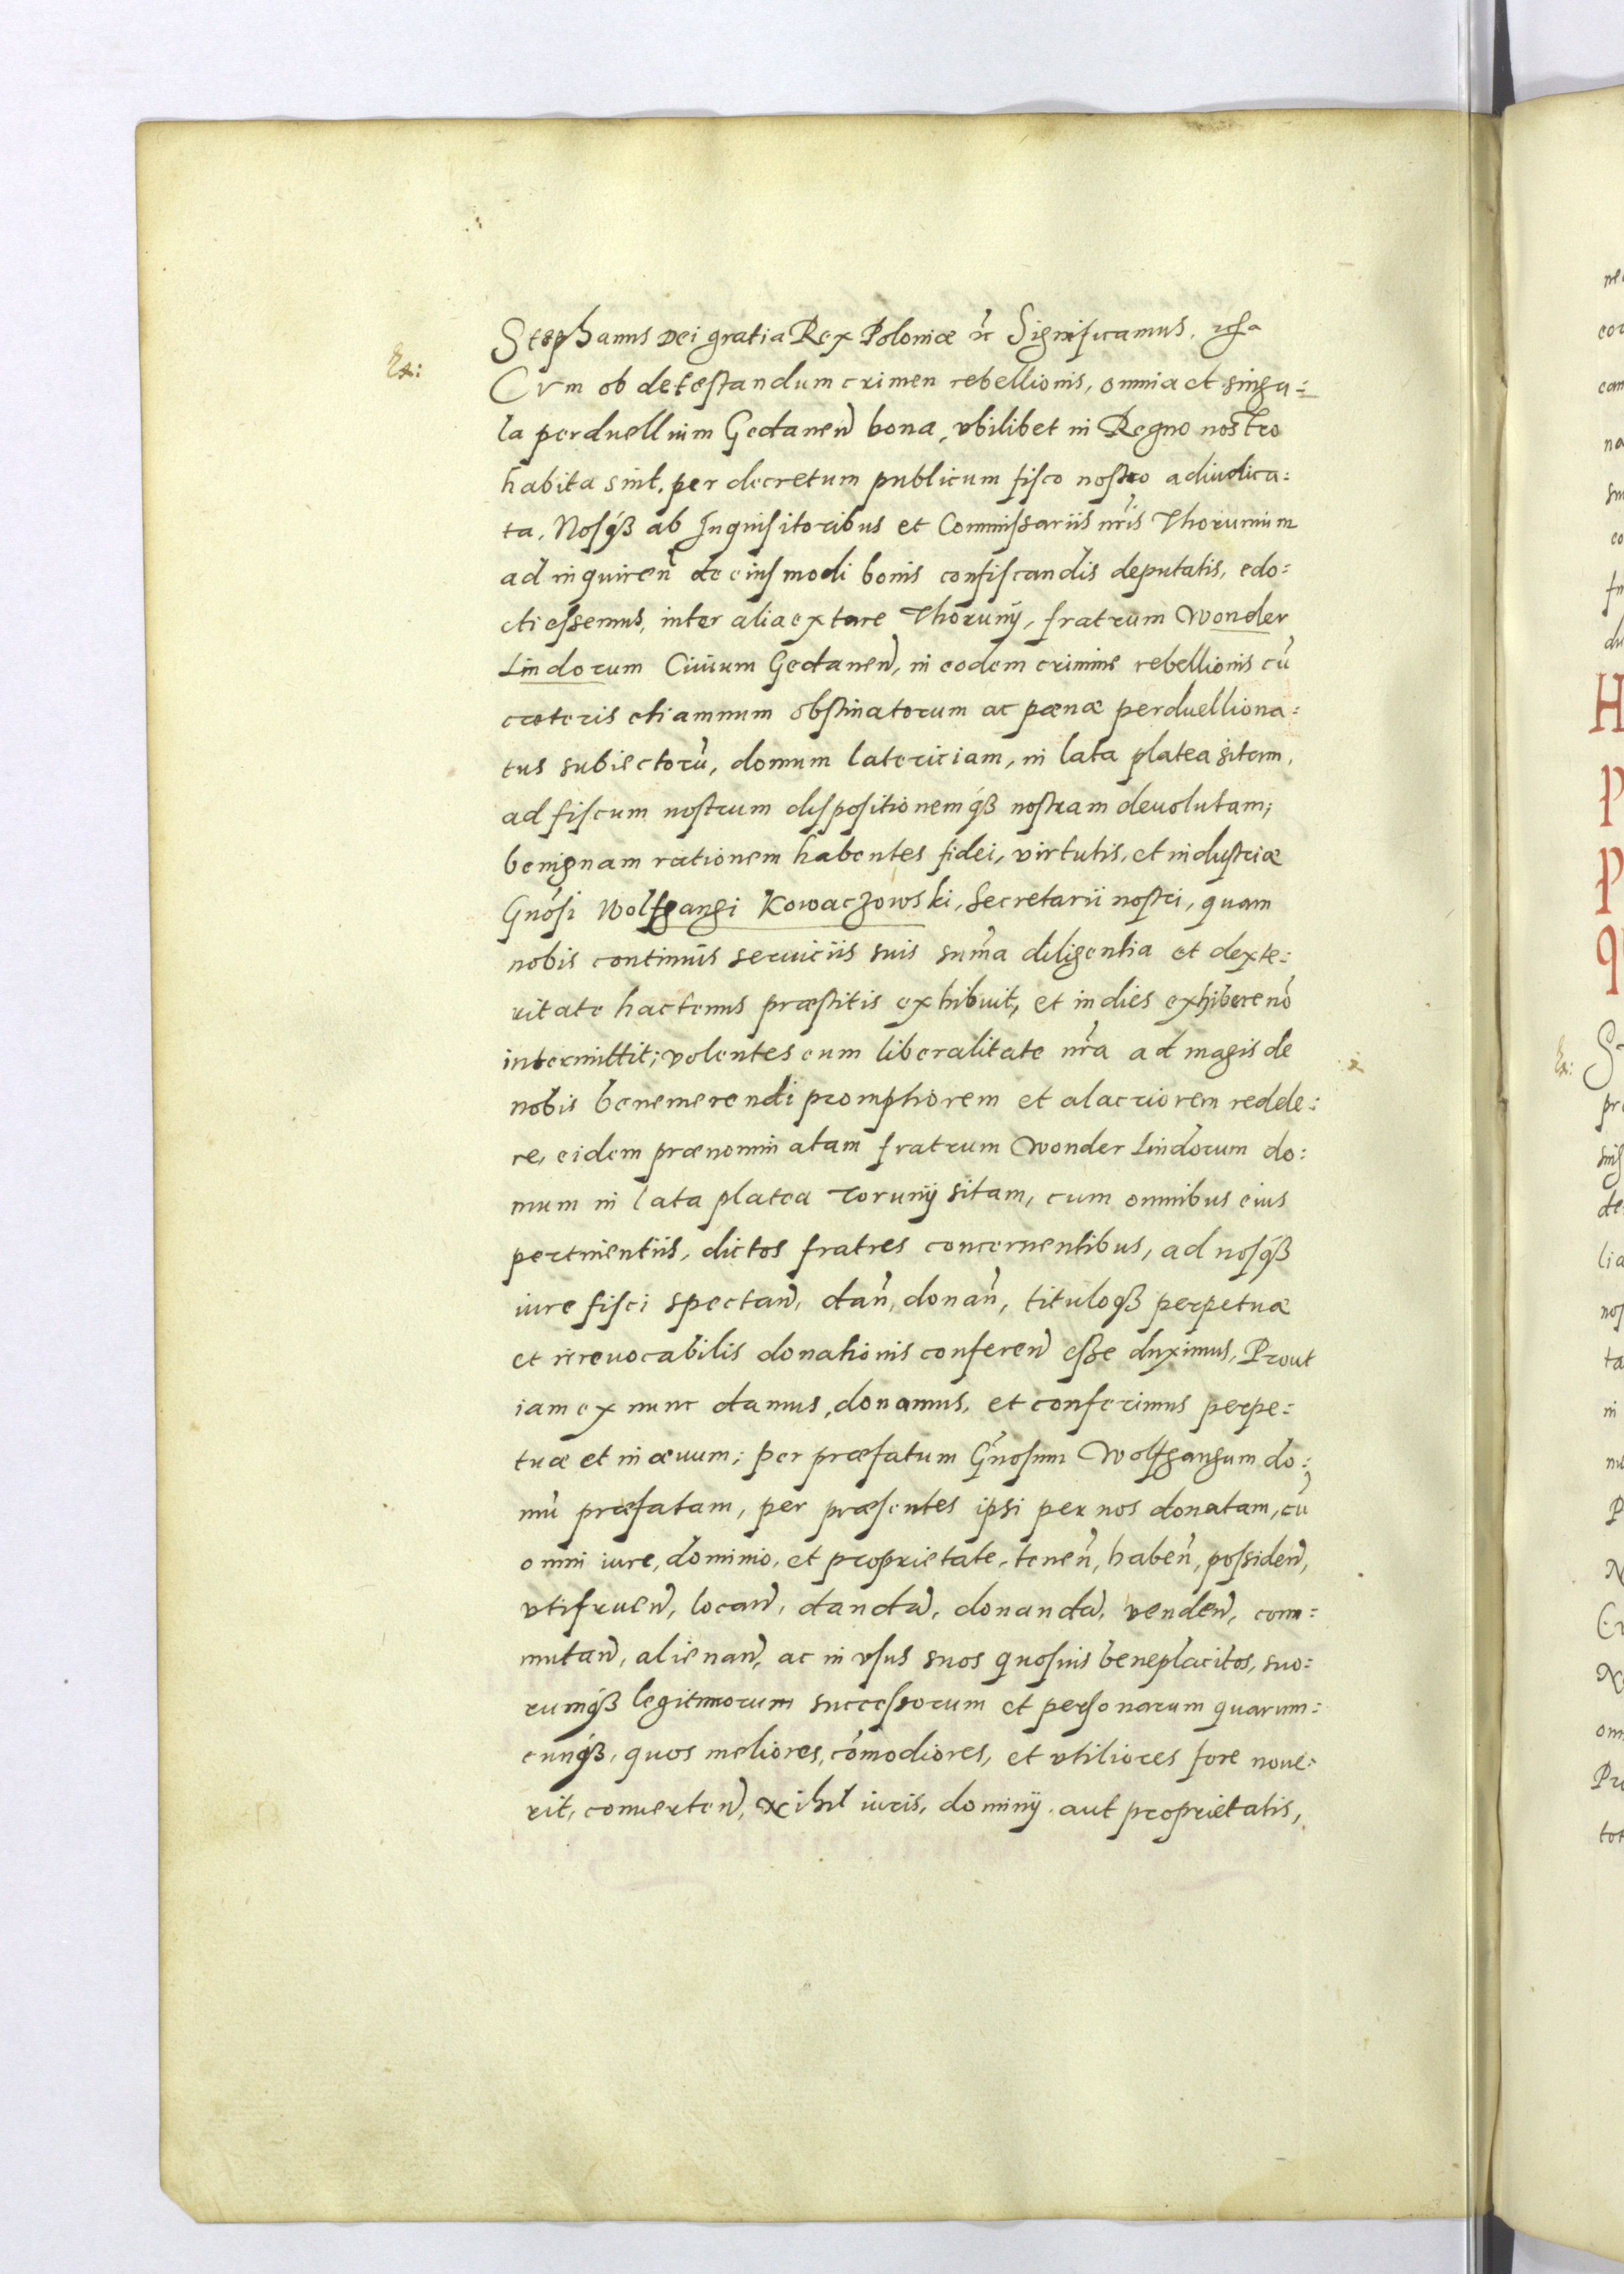 Stephanus Dei gratia Rex Poloniæ ꝛc Significamus.
Ex:
Cvm ob detestandum crimen rebellionis, omnia et singu:
la perduellium Gedanen̄ bona, vbilibet in Regno nostro
habita sint, per decretum publicum fisco nostro adiudica:
ta, Nosqꝫ ab Inquisitoribus et Commissariis nr̄is Thorunium
ad inquiren̄ de eiusmodi bonis confiscandis deputatis, edo:
cti essemus, inter alia extare Thorunij, fratrum Wonder
Lindorum Ciuium Gedanen̄, in eodem crimine rebellionis cū
cæteris etiamnum obstinatorum ac pœnæ perduelliona:
tus subiectorū, domum latericiam, in lata platea sitam,
ad fiscum nostrum dispositionemqꝫ nostram deuolutam;
benignam rationem habentes fidei, virtutis, et industriæ
Gnōsi Wolfgangi Kowaczowski, Secretarii nostri, quam
nobis continuis seruiciis suis sum̄a diligentia et dexte:
ritate hactenus præstitis exhibuit, et in dies exhibere nō
intermittit; volentes eum liberalitate nr̄a ad magis de
nobis benemerendi promptiorem et alacriorem redde:
re, eidem prænominatam fratrum Wonder Lindorum do:
mum in lata platea Torunij sitam, cum omnibus eius
pertinentiis, dictos fratres concernentibus, ad nosqꝫ
iure fisci spectan̄, dan̄, donan̄, tituloqꝫ perpetuæ
et irreuocabilis donationis conferen̄ esse duximus, Prout
iam ex nunc damus, donamus, et conferimus perpe:
tuæ et in æuum; per præfatum Gn̄osum Wolfgangum do:
mū præfatam, per præsentes ipsi per nos donatam, cū
omni iure, dominio, et proprietate, tenen̄, haben̄, possiden̄,
vtifruen̄, locan̄, dandā, donandā, venden̄, com:
mutan̄, alienan̄, ac in vsus suos quosuis beneplacitos, suo:
rumqꝫ legitimorum successorum et personarum quarum:
cunqꝫ, quos meliores, cōmodiores, et vtiliores fore noue:
rit, conuerten̄, Nihil iuris, dominij aut proprietatis,
Ex: